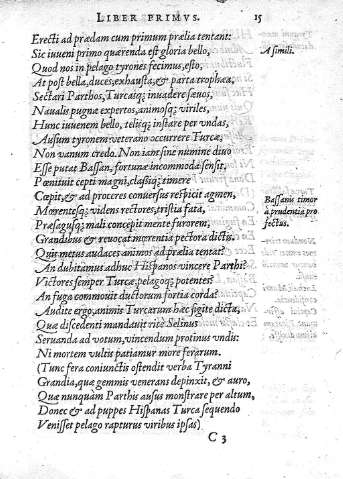 LIBER PRIMVS. 15
Erecti ad prædam cum primum prælia tentant:
Sic iuueni primo quærenda est gloria bello, A simili.
Quod nos in pelago tyrones fecimus, esto,
At post bella, duces, exhausta, & parta trophæa,
Sectari Parthos, Turcasq; inuadere sæuos,
Naualis pugnæ expertos, animosq; viriles,
Hunc iuuenem bello, teliiq; instare per vndas,
Ausum tyronem veterano occurrere Turcæ,
Non vanum credo. Non iant sine numine diuo
Esse putat Bassan, fortunæ incommoda sensit,
Pœnituit cepti magni, classiq; timere
Cœpit, & ad proceres conuersus respicit agmen, Bassanis timor
Mœrentesq; videns rectores, tristia fata, à prudentia pro
Præsagusq; mali concepit mente furorem, fectus.
Grandibus & reuocat mœrentia pectora dictis.
Quis metus audaces animos ad prælia tentat?
An dubitamus adhuc Hispanos vincere Parthi?
Victores semper Turcæ pelagoq; potentes?
An fuga commouit ductorum fortia corda?
Audite ergo, animis Turcarum hæc figite dicta,
Quæ discedenti mandauit rite Selinus
Seruanda ad votum, vincendum protinus vndis:
Ni mortem vultis patiamur more ferarum.
(Tunc fera coniunctis ostendit verba Tyranni
Grandia, quæ gemmis venerans depinxit, & auro,
Quæ nunquàm Parthis ausus monstrare per altum,
Donec & ad puppes Hispanas Turca sequendo
Venisset pelago rapturus viribus ipsas)
C 3